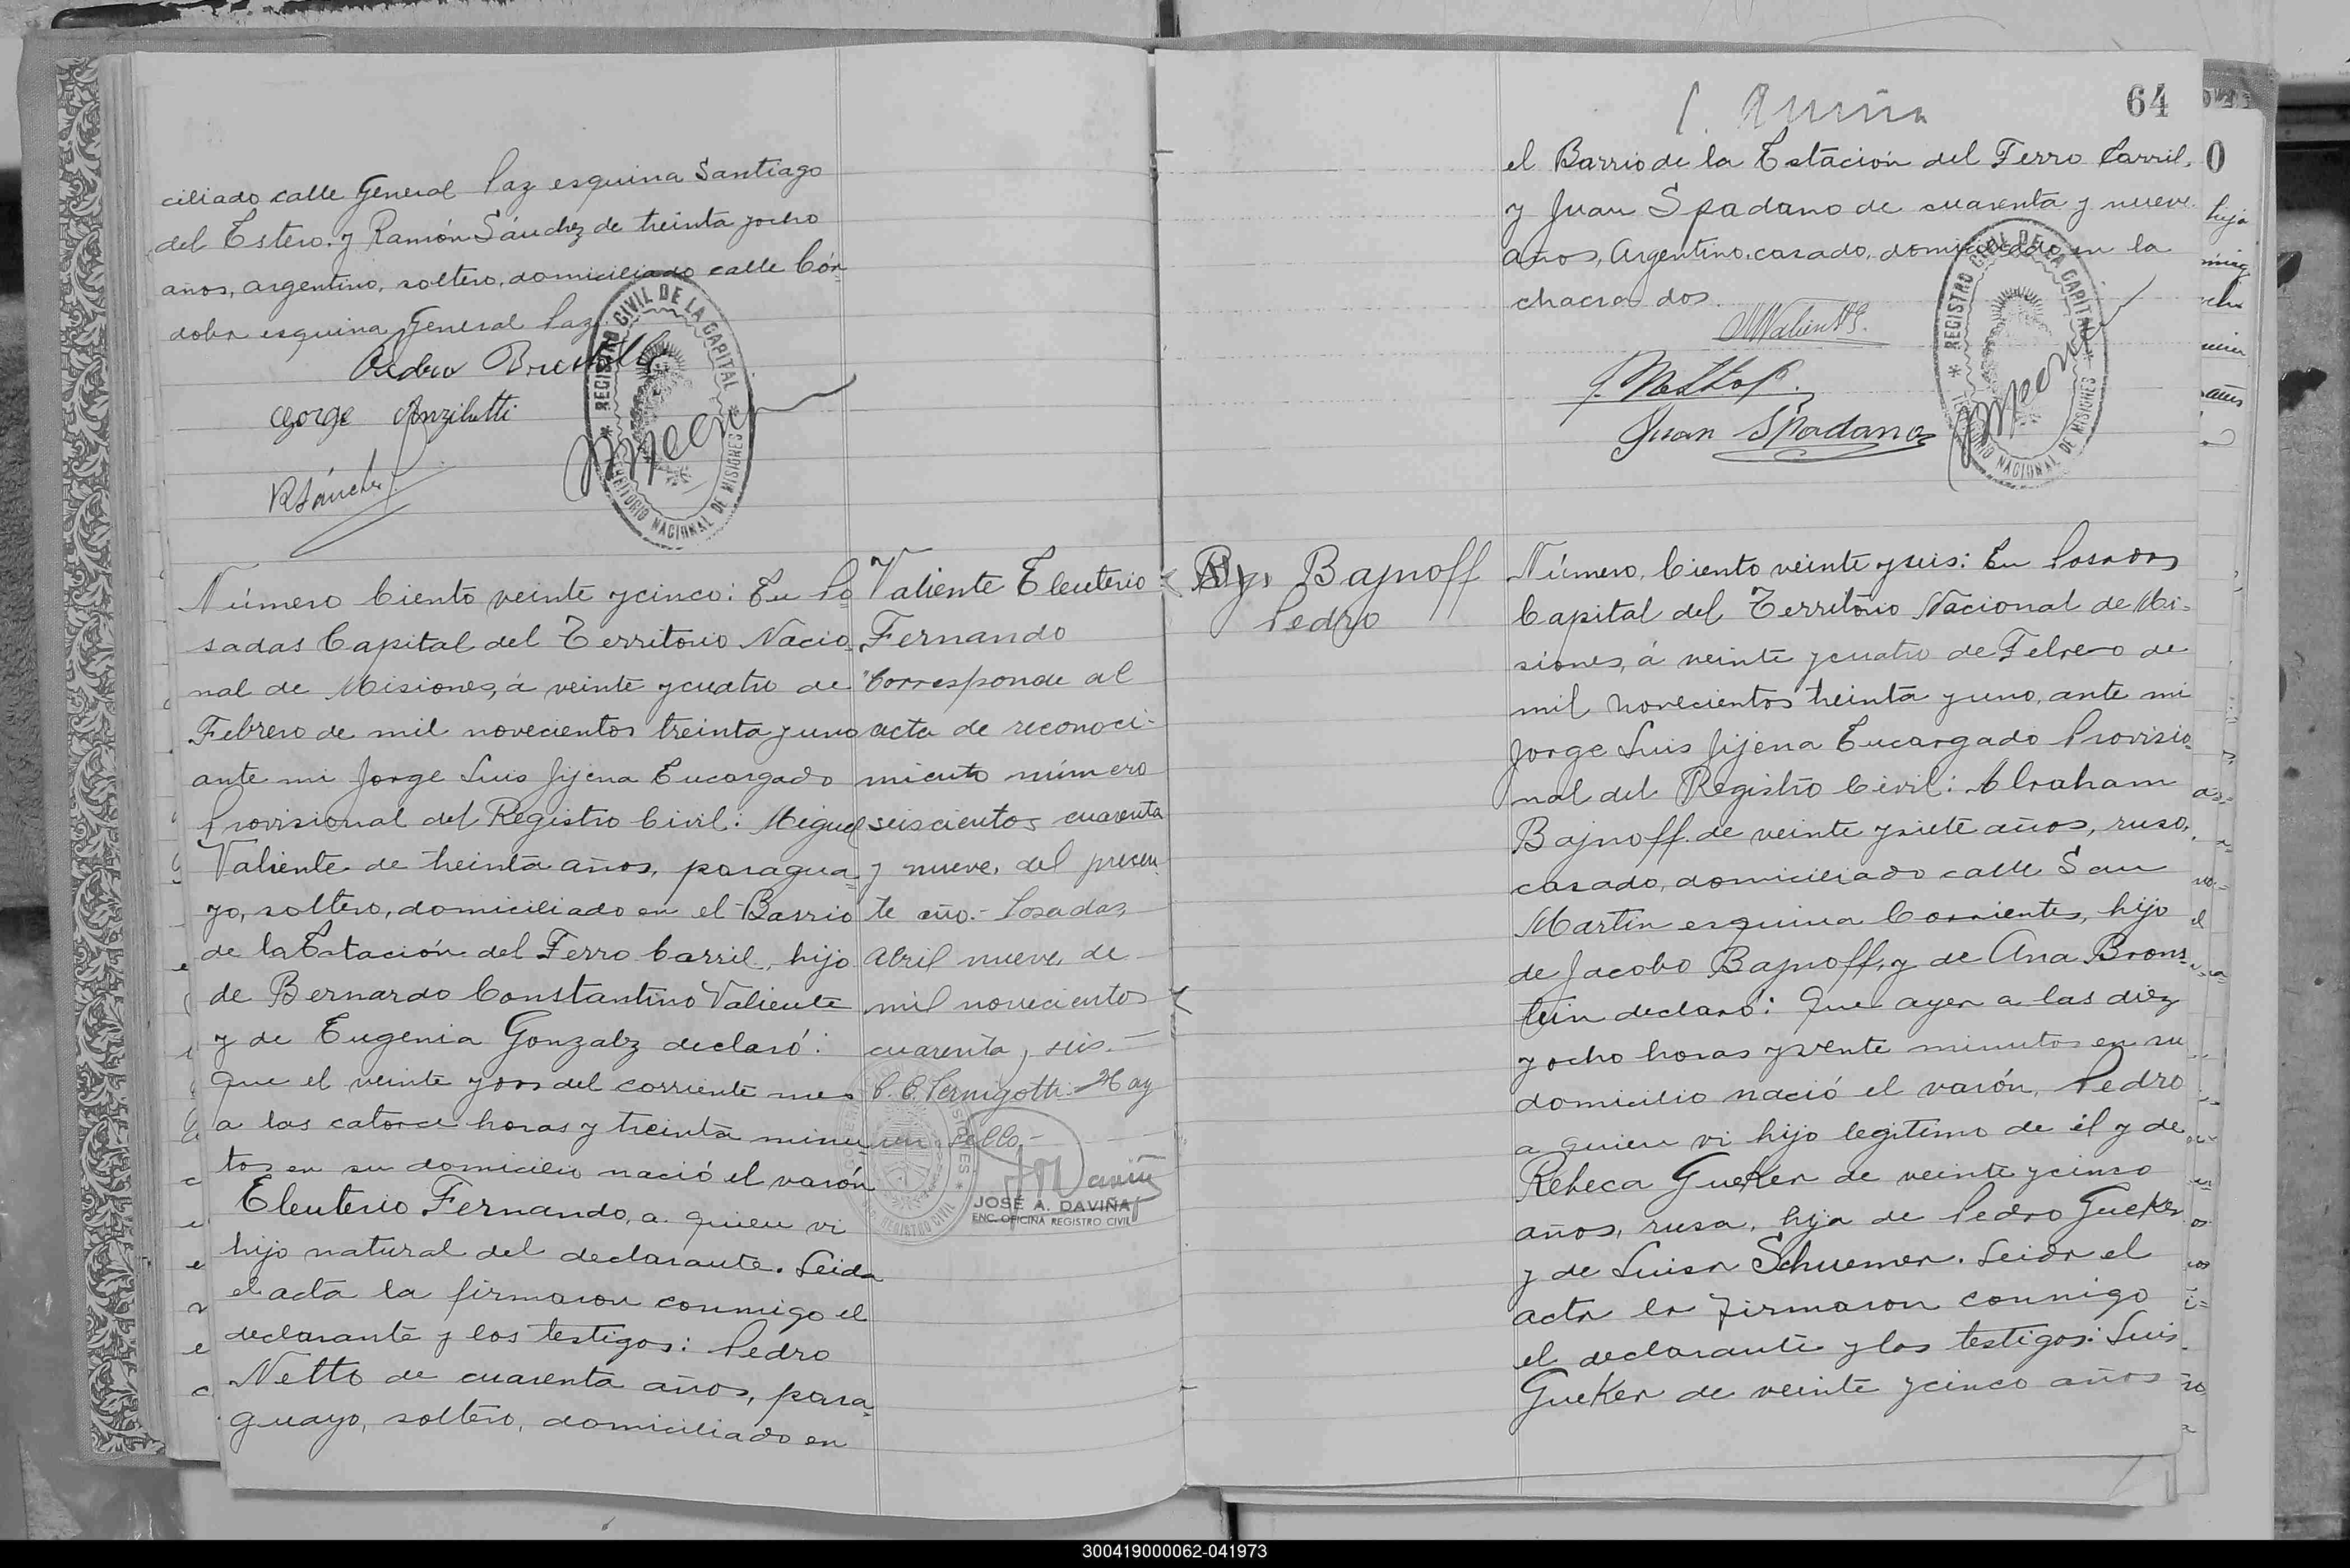 ciliado calle General Paz esquina Santiago
del Estero. y Ramón Sánchez de treinta y ocho
años, argentino, soltero, domiciliado calle Cór
doba esquina General Paz.
George Anzilutti
RSánchez
REGISTRO CIVIL DE LA CAPITAL
TERRITORIO NACIONAL DE MISIONES
Número Ciento veinte y cinco: En Po
sadas Capital del Territorio Nacio
nal de Misiones, á veinte y cuatro de
Febrero de mil novecientos treinta y uno
ante mi Jorge Luis Jijena Encargado
Provisional del Registro Civil: Miguel
Valiente de treinta años, paragua-
yo, soltero, domiciliado en el Barrio
de la Estación del Ferro Carril, hijo
de Bernardo Constantino Valiente
y de Eugenia Gonzalz declaró:
Que el veinte y dos del corriente mes
a las catorce horas y treinta minu
tos en su domicilio nació el varón
Eleuterio Fernando, a quien vi
hijo natural del declarante. Leida
el acta la firmaron conmigo el
declarante y los testigos: Pedro
Netto de cuarenta años, para-
guayo, soltero, domiciliado en
Valiente Eleuterio
Fernando
"Corresponde al
acta de reconoci-
miento número
seiscientos cuarenta
y nueve, del presen
te año.- Posadas,
Abril nueve de
mil novecientos
cuarenta y seis.-
P. C. Pernigotti. Hay
un sello.-
JOSÉ A. DAVIÑA
ENC. OFICINA REGISTRO CIVIL
64
el Barrio de la Estación del Ferro Carril,
y Juan Spadano de cuarenta y nueve
años, Argentino, casado, domiciliado en la
chacra dos.
Juan Spadano
REGISTRO CIVIL DE LA CAPITAL
TERRITORIO NACIONAL DE MISIONES
Bajnoff
Pedro
Número, Ciento veinte y seis: En Posadas
Capital del Territorio Nacional de Mi-
siones, á veinte y cuatro de Febrero de
mil novecientos treinta y uno, ante mi
Jorge Luis Jijena Encargado Provisio
nal del Registro Civil: Abraham
Bajnoff de veinte y siete años, ruso,
casado, domiciliado calle San
Martin esquina Corrientes, hijo
de Jacobo Bajnoff, y de Ana Brons
tein declaró: Que ayer a las diez
y ocho horas y vente minutos en su
domicilio nació el varón, Pedro
a quien vi hijo legitimo de él y de
Rebeca Gueker de veinte y cinco
años, rusa, hija de Pedro Gueker
y de Luisa Schuemer. Leida el
acta la firmaron conmigo
el declarante y los testigos: Luis
Gueker de veinte y cinco años
300419000062-041973